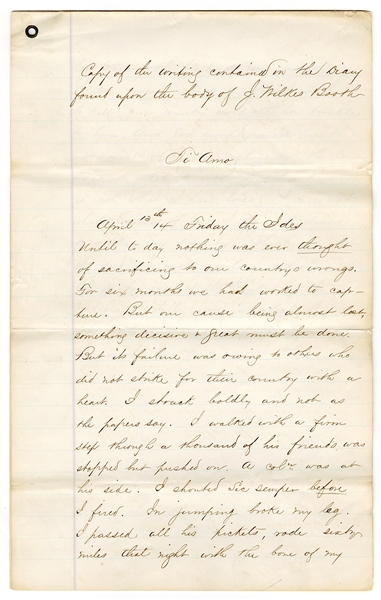 Copy of the writing contained in the Diary
found upon the body of J. Wilkes Booth
Ti Amo
April 13th 14 Friday the Ides
Until to day nothing was ever thought
of sacrificing to our country's wrongs.
For six months we had worked to cap-
ture. But our cause being almost lost,
something decisive & great must be done.
But its failure was owing to others who
did not strike for their country with a
heart. I struck boldly and not as
the papers say. I walked with a firm
step through a thousand of his friends, was
stopped but pushed on. A Col. was at
his side. I shouted Sic semper before
I fired. In jumping broke my leg.
I passed all his pickets, rode sixty
miles that night with the bone of my